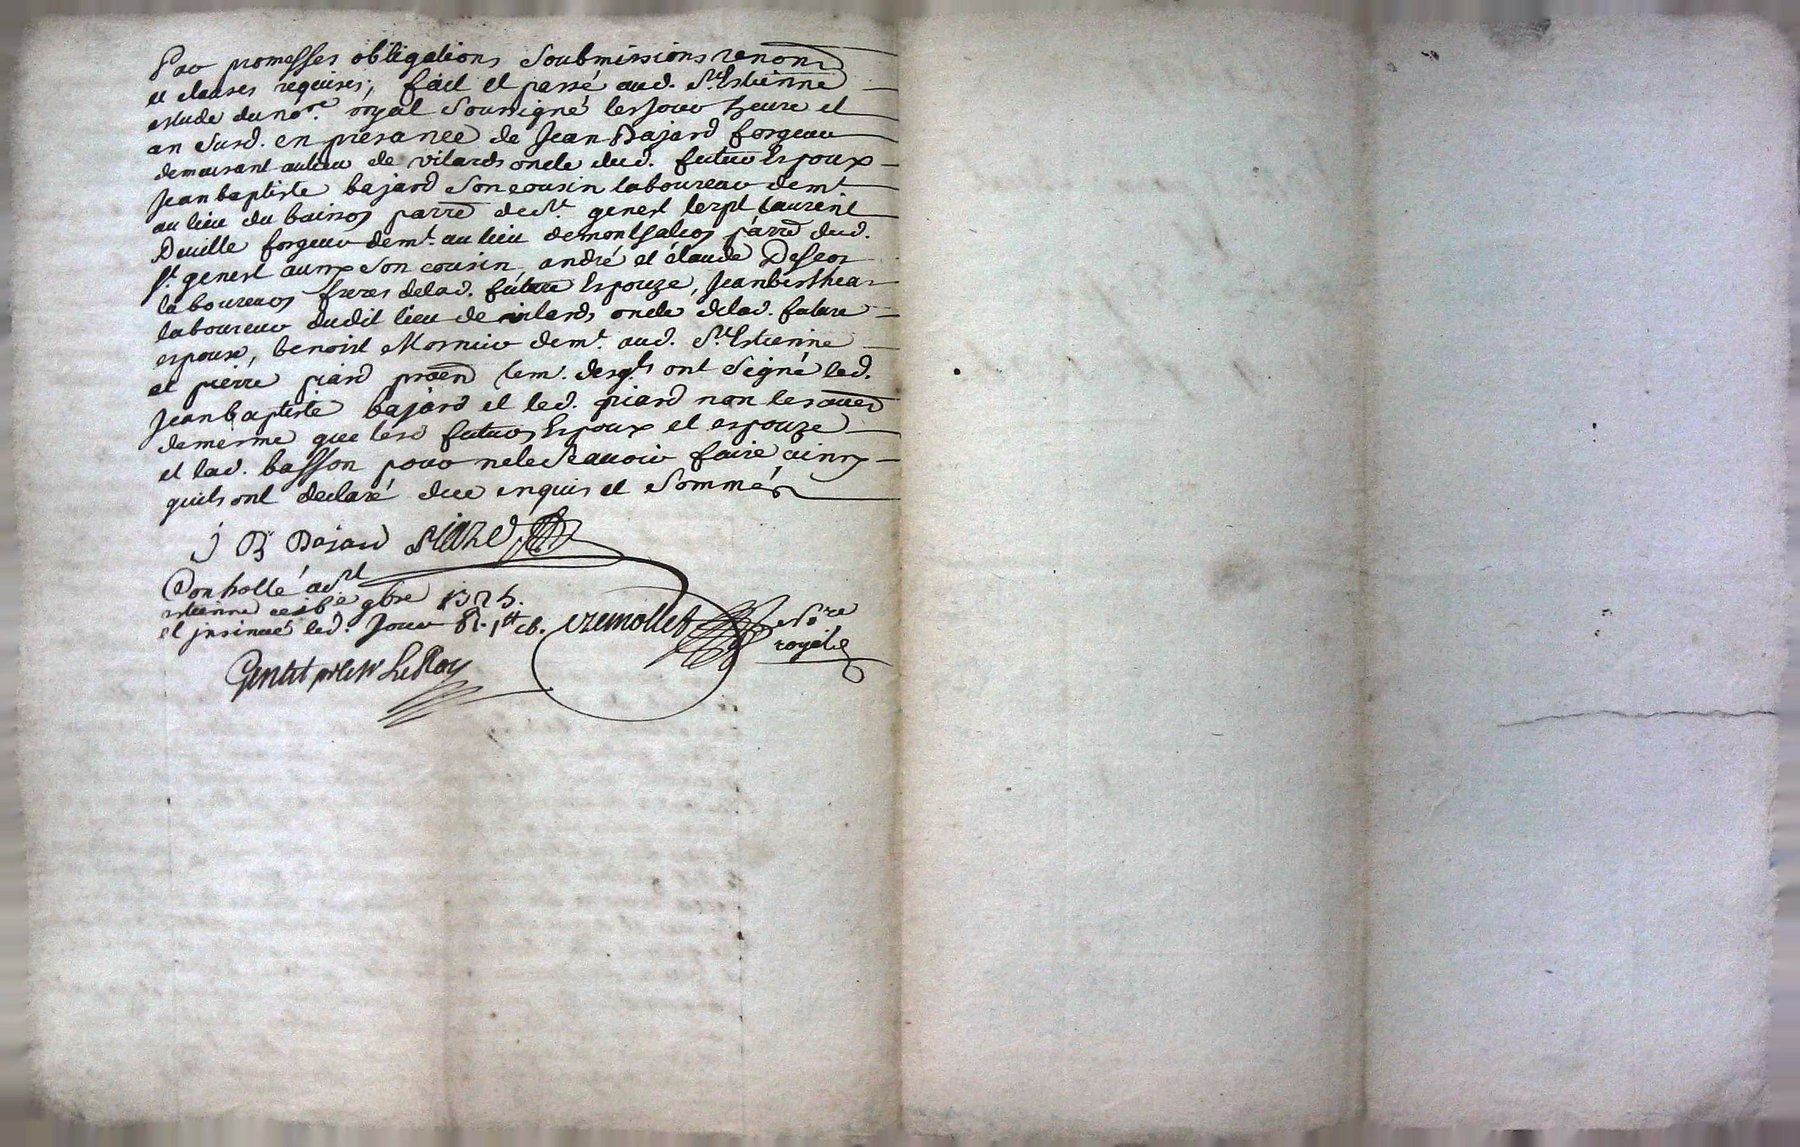 Par promesses obligations soubmissions renonz
et clauses requises, fait et passé aud. St Estienne
estude du nore. royal soussigné les jour heure et
an susd. en presance de Jean Bajard forgeur
demeurant au lieu de vilards oncle dud. futur Espoux
Jean baptiste bajard son cousin laboureur demt
au lieu du parre de St. genest lerpt Laurent
Deville forgeur demt. au lieu de parre dud.
St. genest aussy son cousin, andré et claude
laboureurs freres de lad. future Espouze, Jean
laboureur dudit lieu de vilards oncle delad. future
espouse, benoist Mornieu demt. aud. St. Estienne
et pierre piard tem. desqls ont signé led.
Jean baptiste bajard et led. piard non les autres
de mesme que lesd futurs Espoux et espouze
et lad. basson pour ne le sçauoir faire ainsy
quils ont declaré de ce enquis et sommés
J B Bajard piard
Controllé a St
estienne ce 9bre
et insinué led. Jour
nore
royal
Gentet pr le sr LeRoy